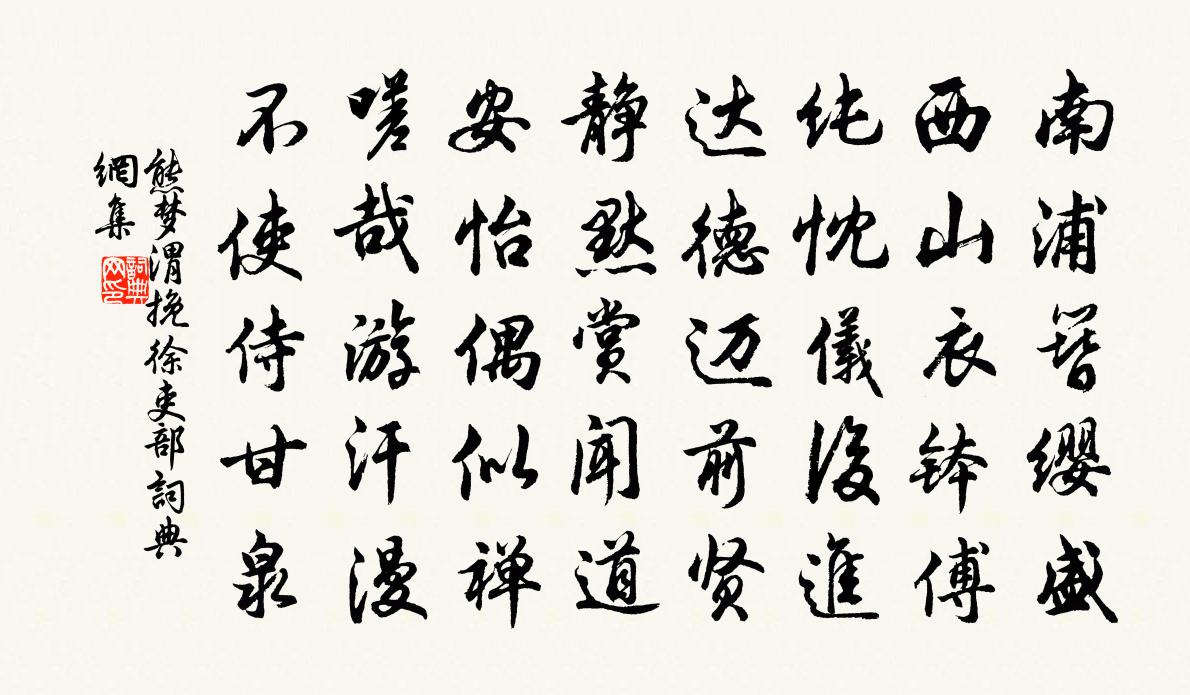 南浦簪缨盛
西山衣钵傅
纯忱儀後進
达德迈前贤
静默赏闻道
安怡偶似禅
嗟哉游汗漫
不使侍甘泉
熊梦渭挽徐吏部詞典
網集
詞典
网印